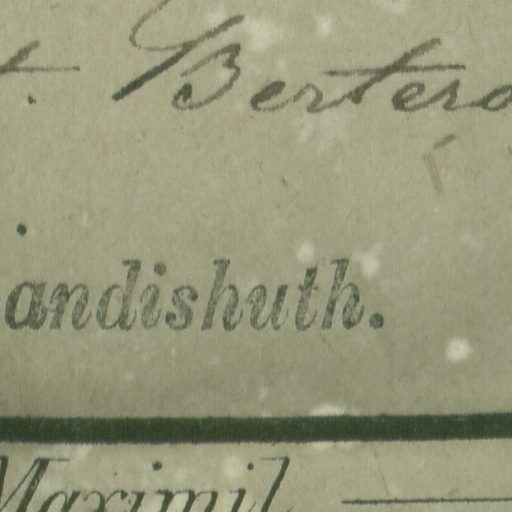 t. Bertero
andishuth.
Maximil